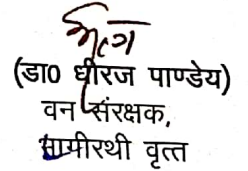 (डा० धीरज पाण्डेय)
वन संरक्षक,
भागीरथी वृत्त